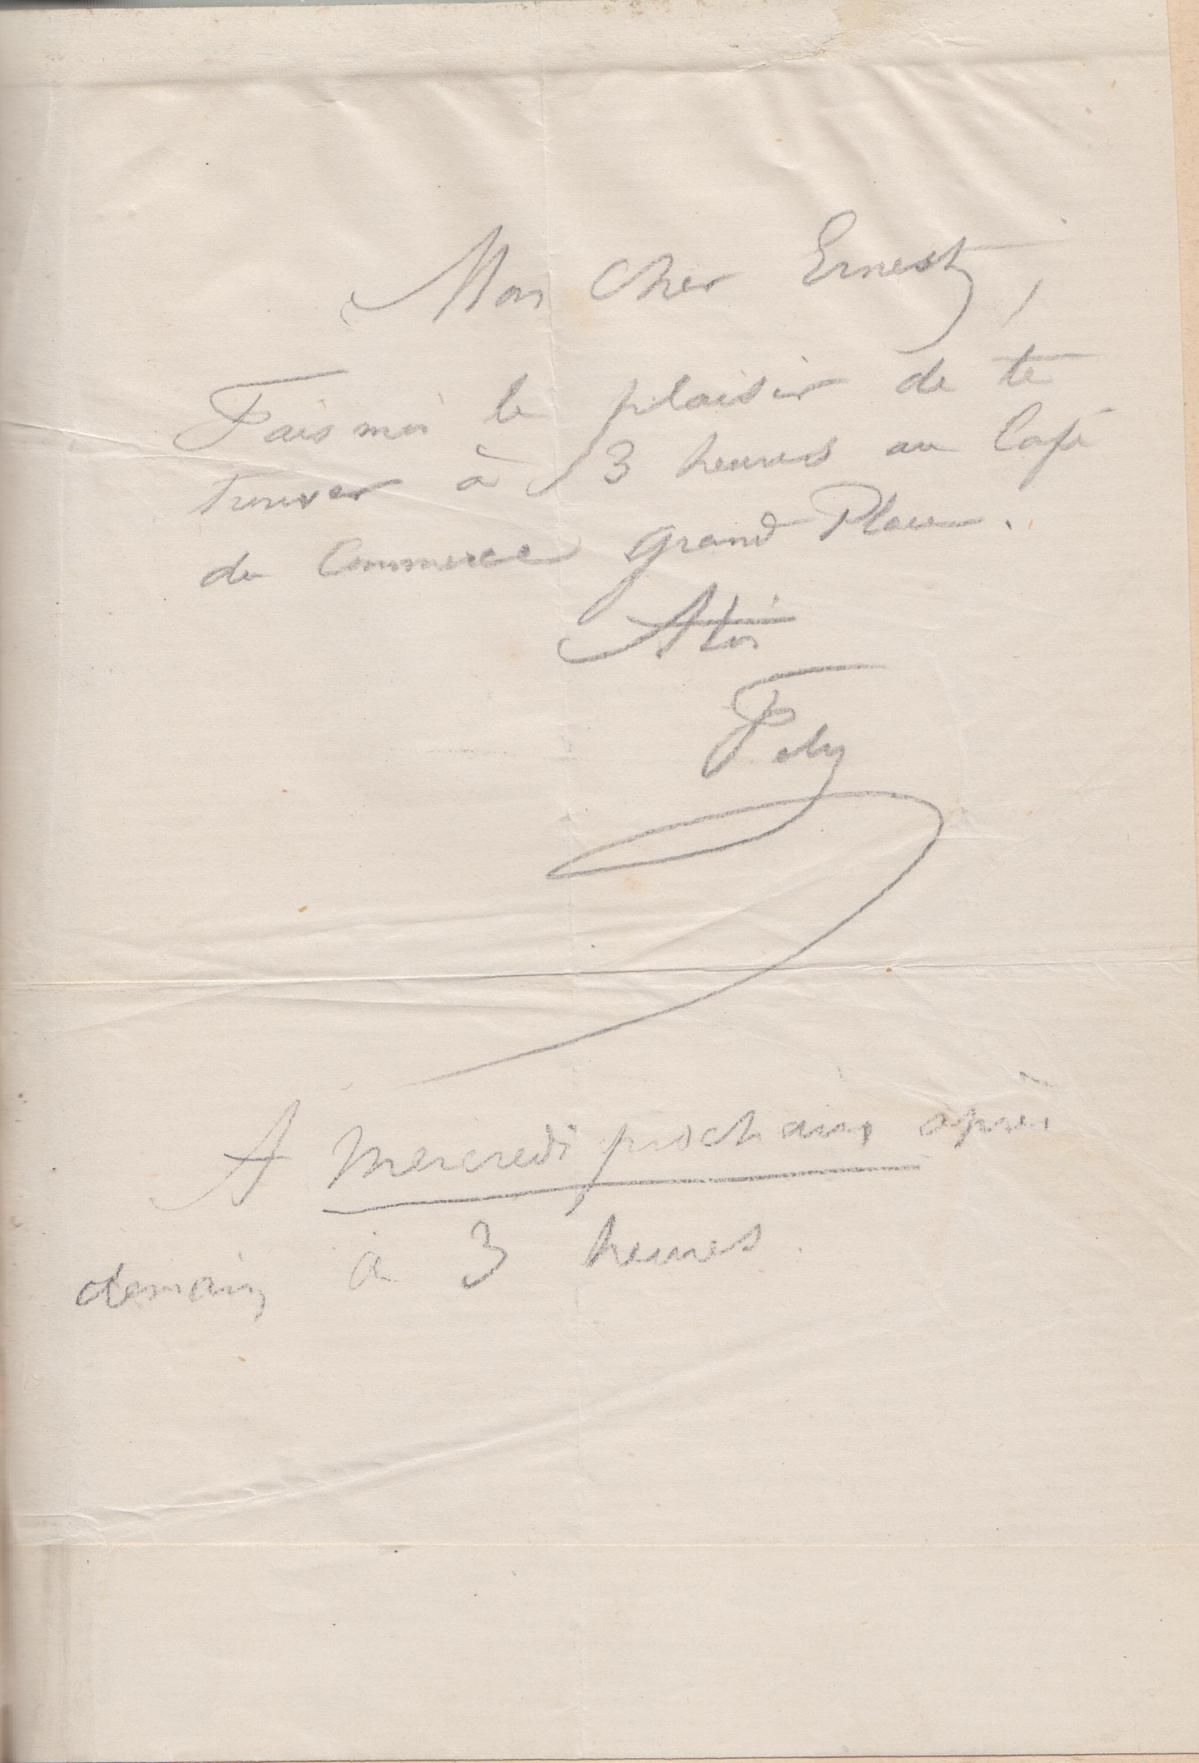 Mon Cher Ernest,
Fais moi le plaisir de te
trouver à 3 heures au Café
du Commerce grand Place.
A toi
Fély
A Mercredi prochain après
demain à 3 heures.